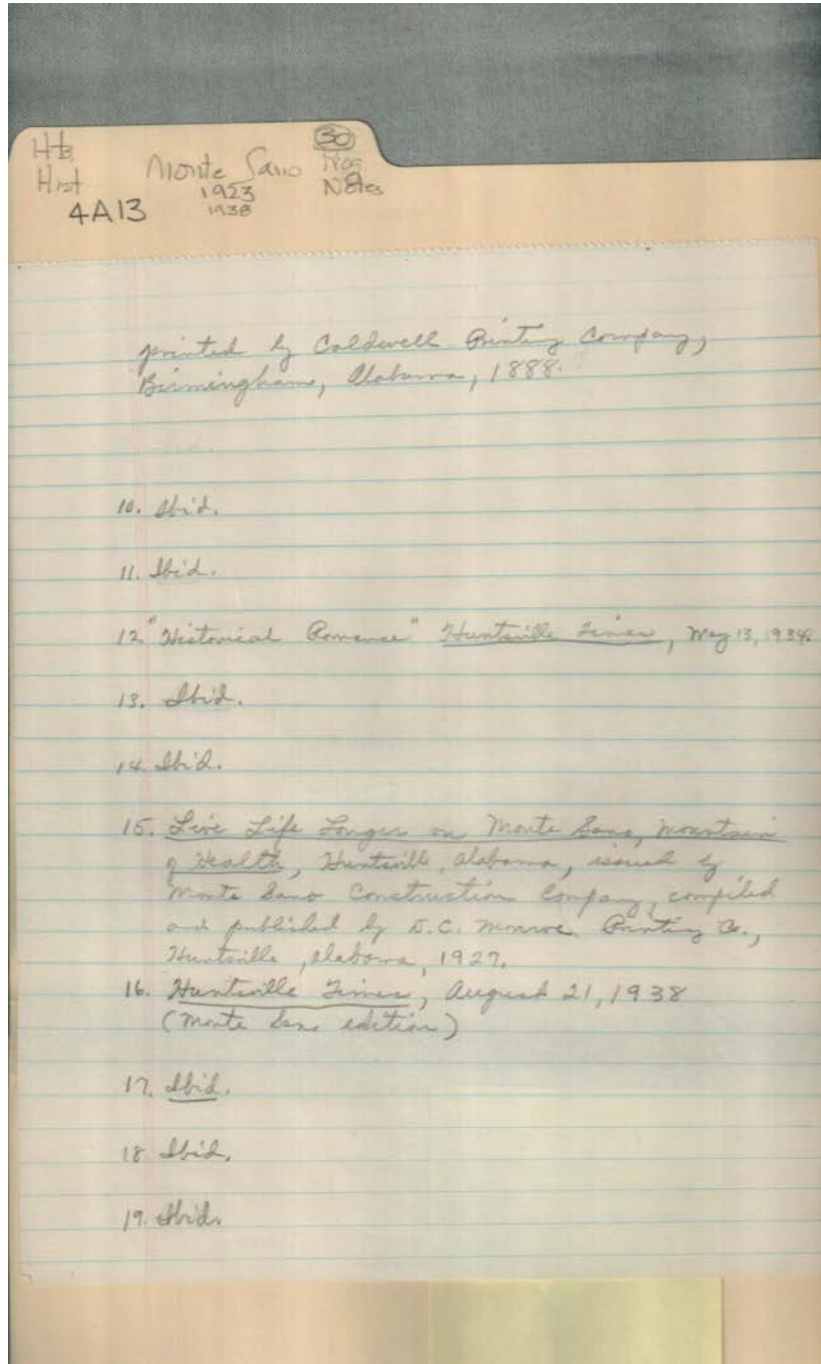 Htb
Hist
4A13
Monte Sano
1923
1938
30
Notes
printed by Caldwell Printing Company,
Birmingham, Alabama, 1888.
10. Ibid.
11. Ibid.
12. "Historical Romance" Huntsville Times, May 13, 1934.
13. Ibid.
14. Ibid.
15. Live Life Longer on Monte Sano, Mountain
of Health, Huntsville, Alabama, issued by
Monte Sano Construction Company, compiled
and published by D.C. Monroe Printing Co.,
Huntsville, Alabama, 1927.
16. Huntsville Times, August 21, 1938
(Monte Sano edition)
17. Ibid.
18 Ibid.
19. Ibid.